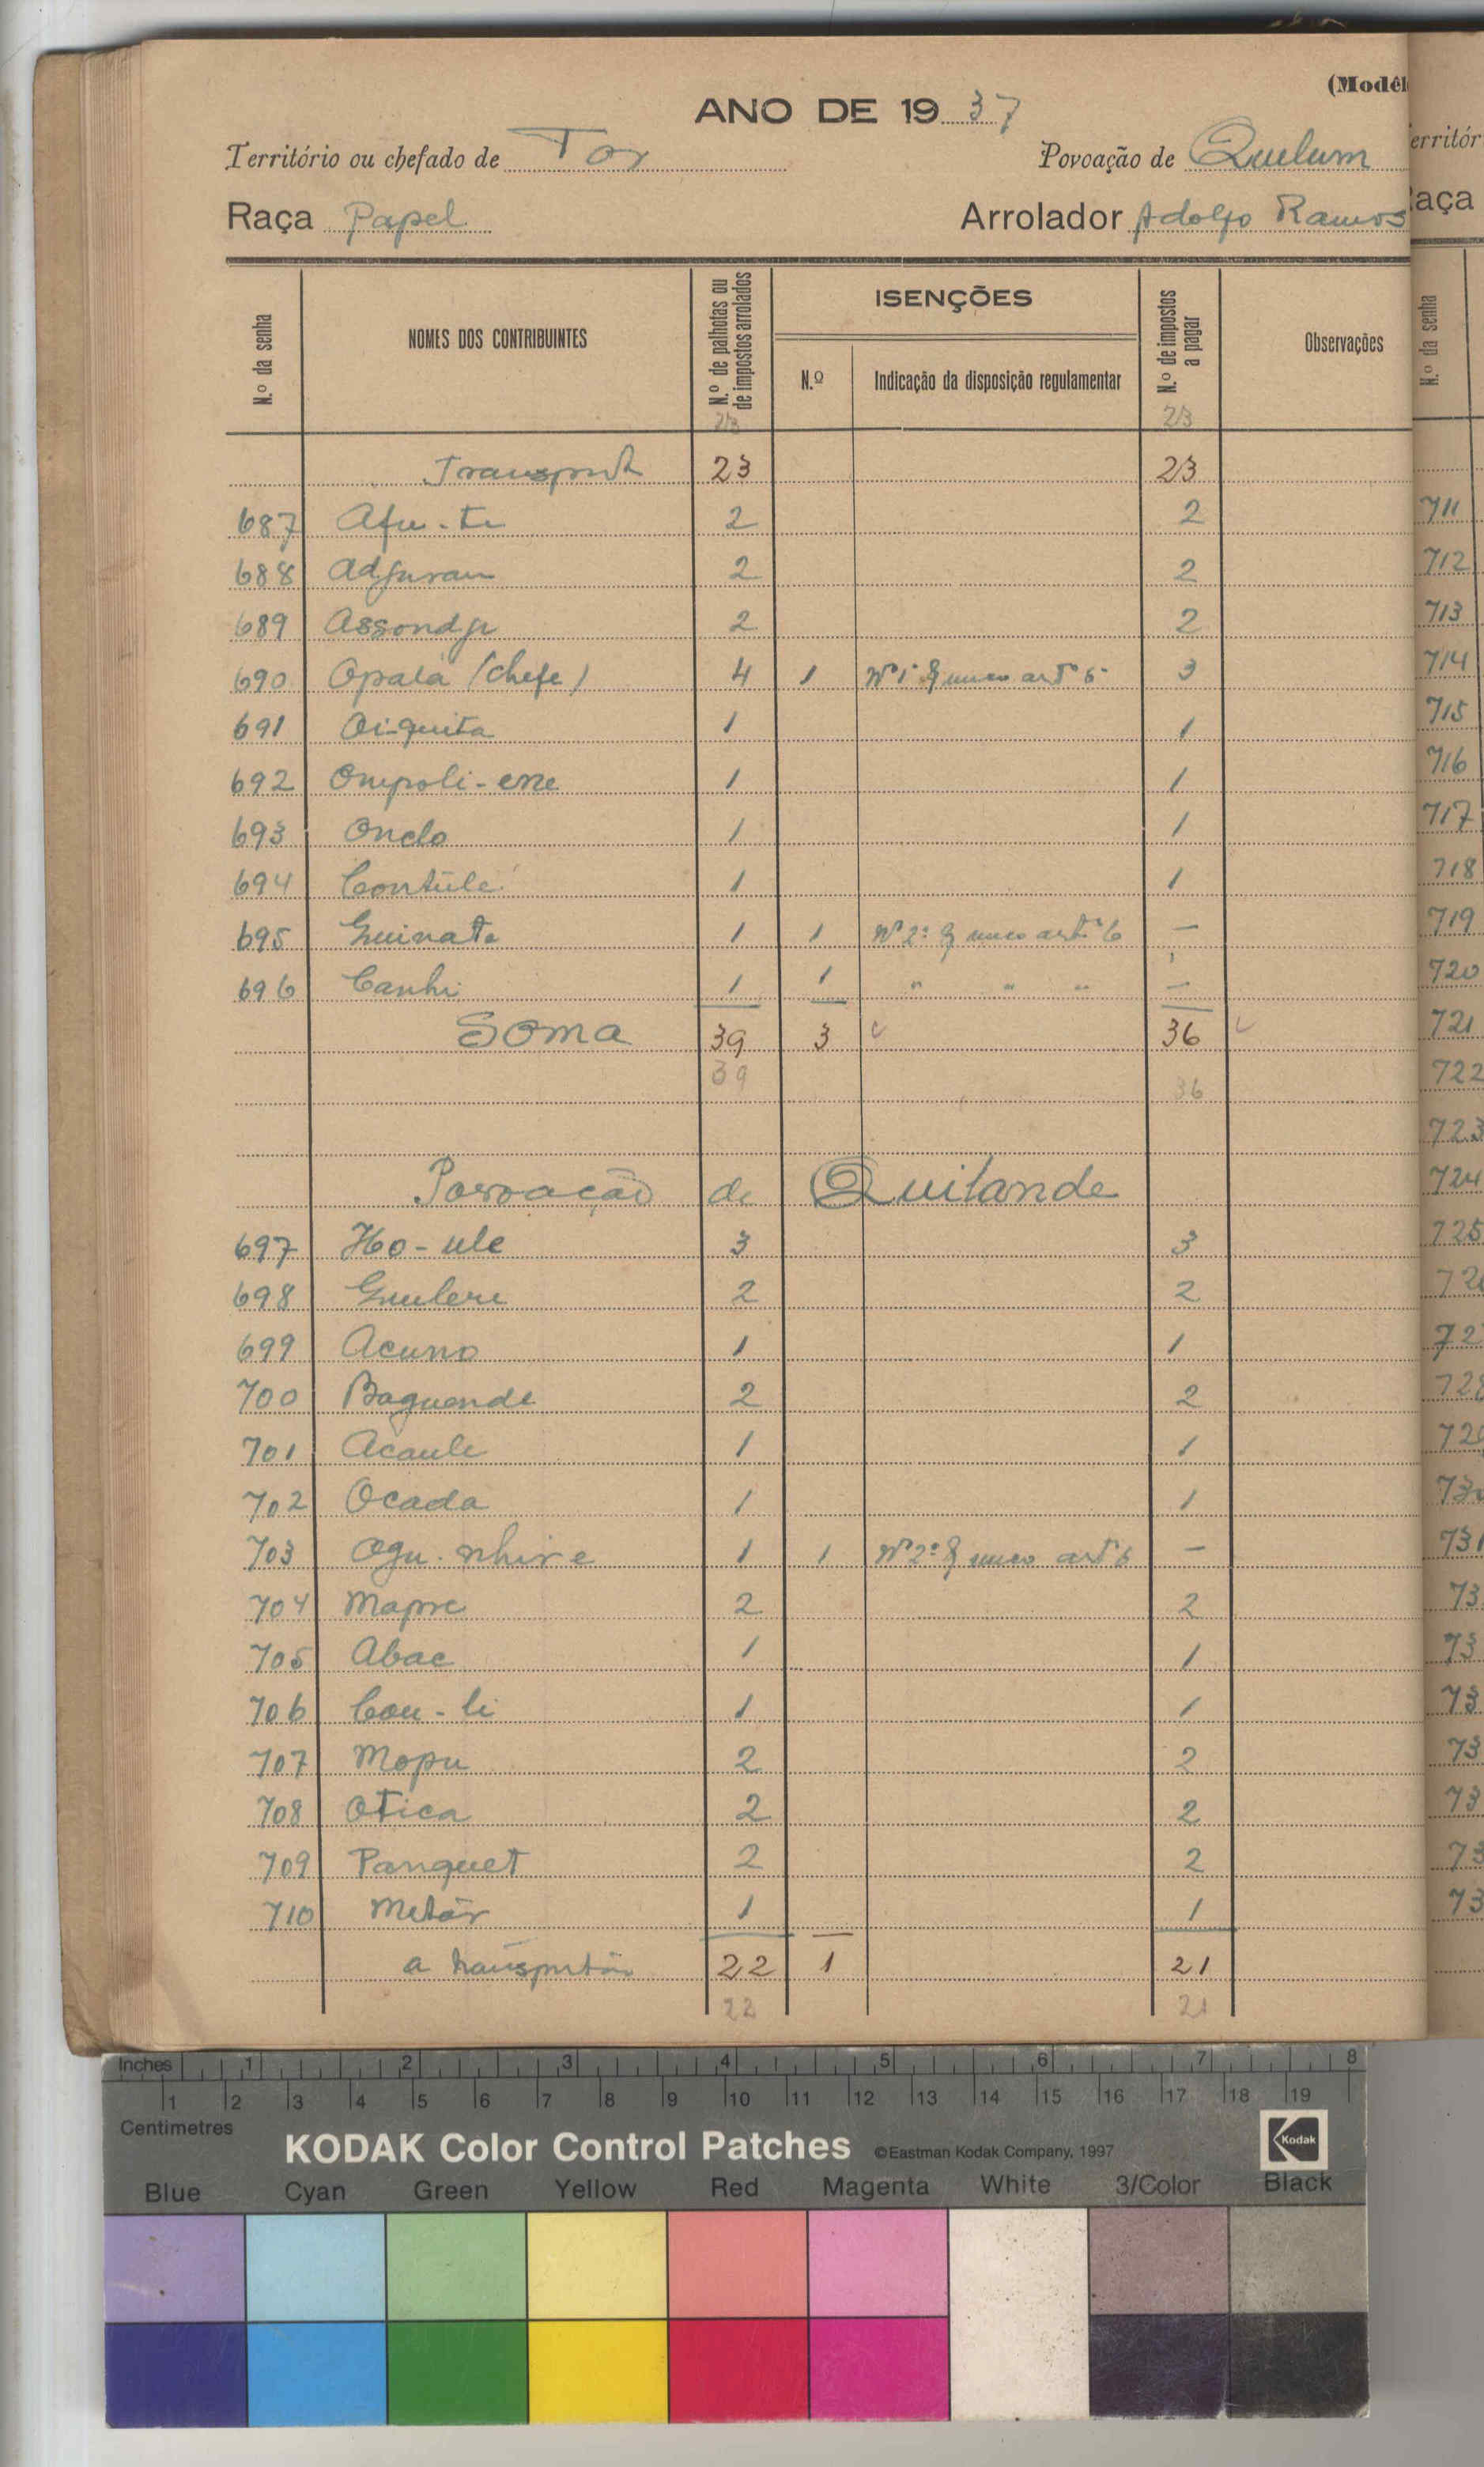 (Modêl
ANO DE 19 37
Território ou chefado de Tor Povoação de Quelum
Raça Papel Arrolador Adolfo Ramos
N.º da senha NOMES DOS CONTRIBUINTES N.º de palhotas ou de impostos arrolados ISENÇÕES N.º Indicação da disposição regulamentar N.º de impostos a pagar Observações
23 23
Transport 23 23
687 Afu-te 2 2
688 Adjuran 2 2
689 Assondje 2 2
690 Opalá (chefe) 4 1 Nº 1º § unico artº 6º 3
691 Oi-quita 1 1
692 Ompoli-ene 1 1
693 Onclo 1 1
694 Contúlé 1 1
695 Guinate 1 1 Nº 2º § unico artº 6 —
696 Canhi 1 1 " " " —
Soma 39 3 36
39 36
Povoação de Quitande
697 Ho-ule 3 3
698 Gulere 2 2
699 Acuno 1 1
700 Baguende 2 2
701 Acaule 1 1
702 Ocada 1 1
703 Ogu-nhire 1 1 Nº 2º § unico artº 6 —
704 Mapre 2 2
705 Abac 1 1
706 Cou-li 1 1
707 Mopu 2 2
708 Otica 2 2
709 Panguet 2 2
710 Metár 1 1
a transportar 22 1 21
22 21
erritór
aça
N.º da senha
711
712
713
714
715
716
717
718
719
720
721
722
723
724
725
72
72
728
72
73
731
73
73
73
73
73
73
73
Inches 1 2 3 4 5 6 7 8
1 2 3 4 5 6 7 8 9 10 11 12 13 14 15 16 17 18 19
Centimetres
KODAK Color Control Patches ©Eastman Kodak Company, 1997 Kodak
Blue Cyan Green Yellow Red Magenta White 3/Color Black